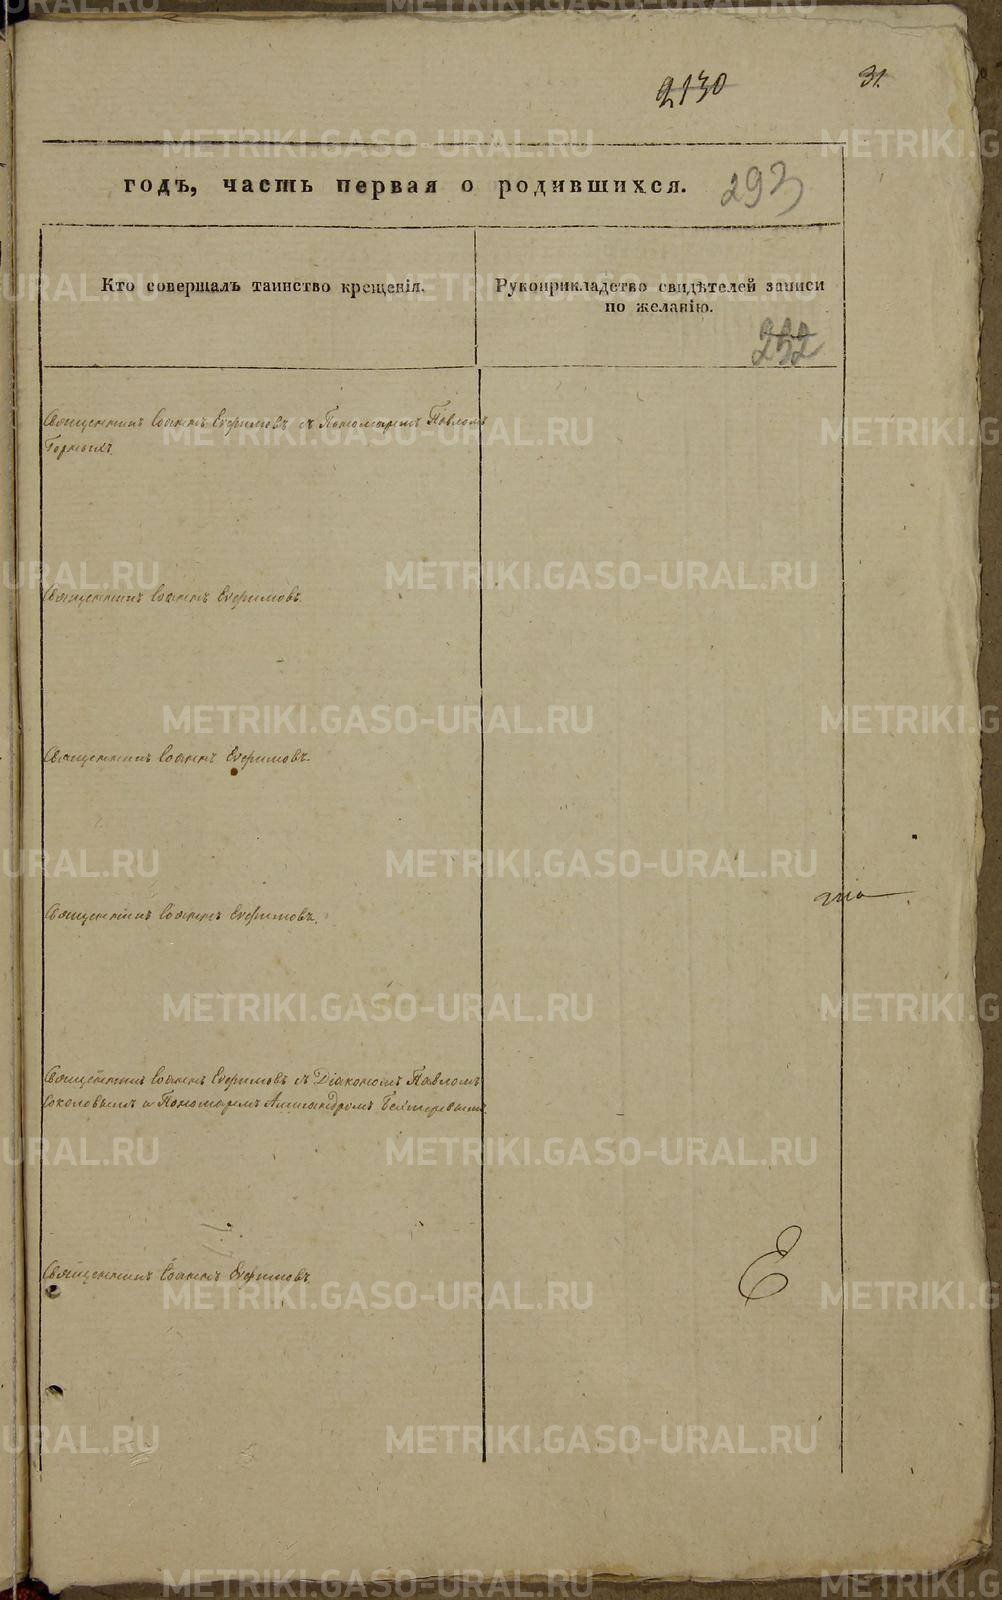 2130
31.
годъ, часть первая о родившихся.
293
Кто совершалъ таинство крещенія.
Рукоприкладство свидѣтелей записи
по желанію.
232
Священникъ Іоаннъ Ефимовъ съ Пономаремъ Павломъ
Горныхъ.
Священникъ Іоаннъ Ефимовъ.
Священникъ Іоаннъ Ефимовъ.
Священникъ Іоаннъ Ефимовъ.
Священникъ Іоаннъ Ефимовъ съ Діакономъ Павломъ
Соколовымъ и Пономаремъ
Священникъ Іоаннъ Ефимовъ.
METRIKI.GASO-URAL.RU